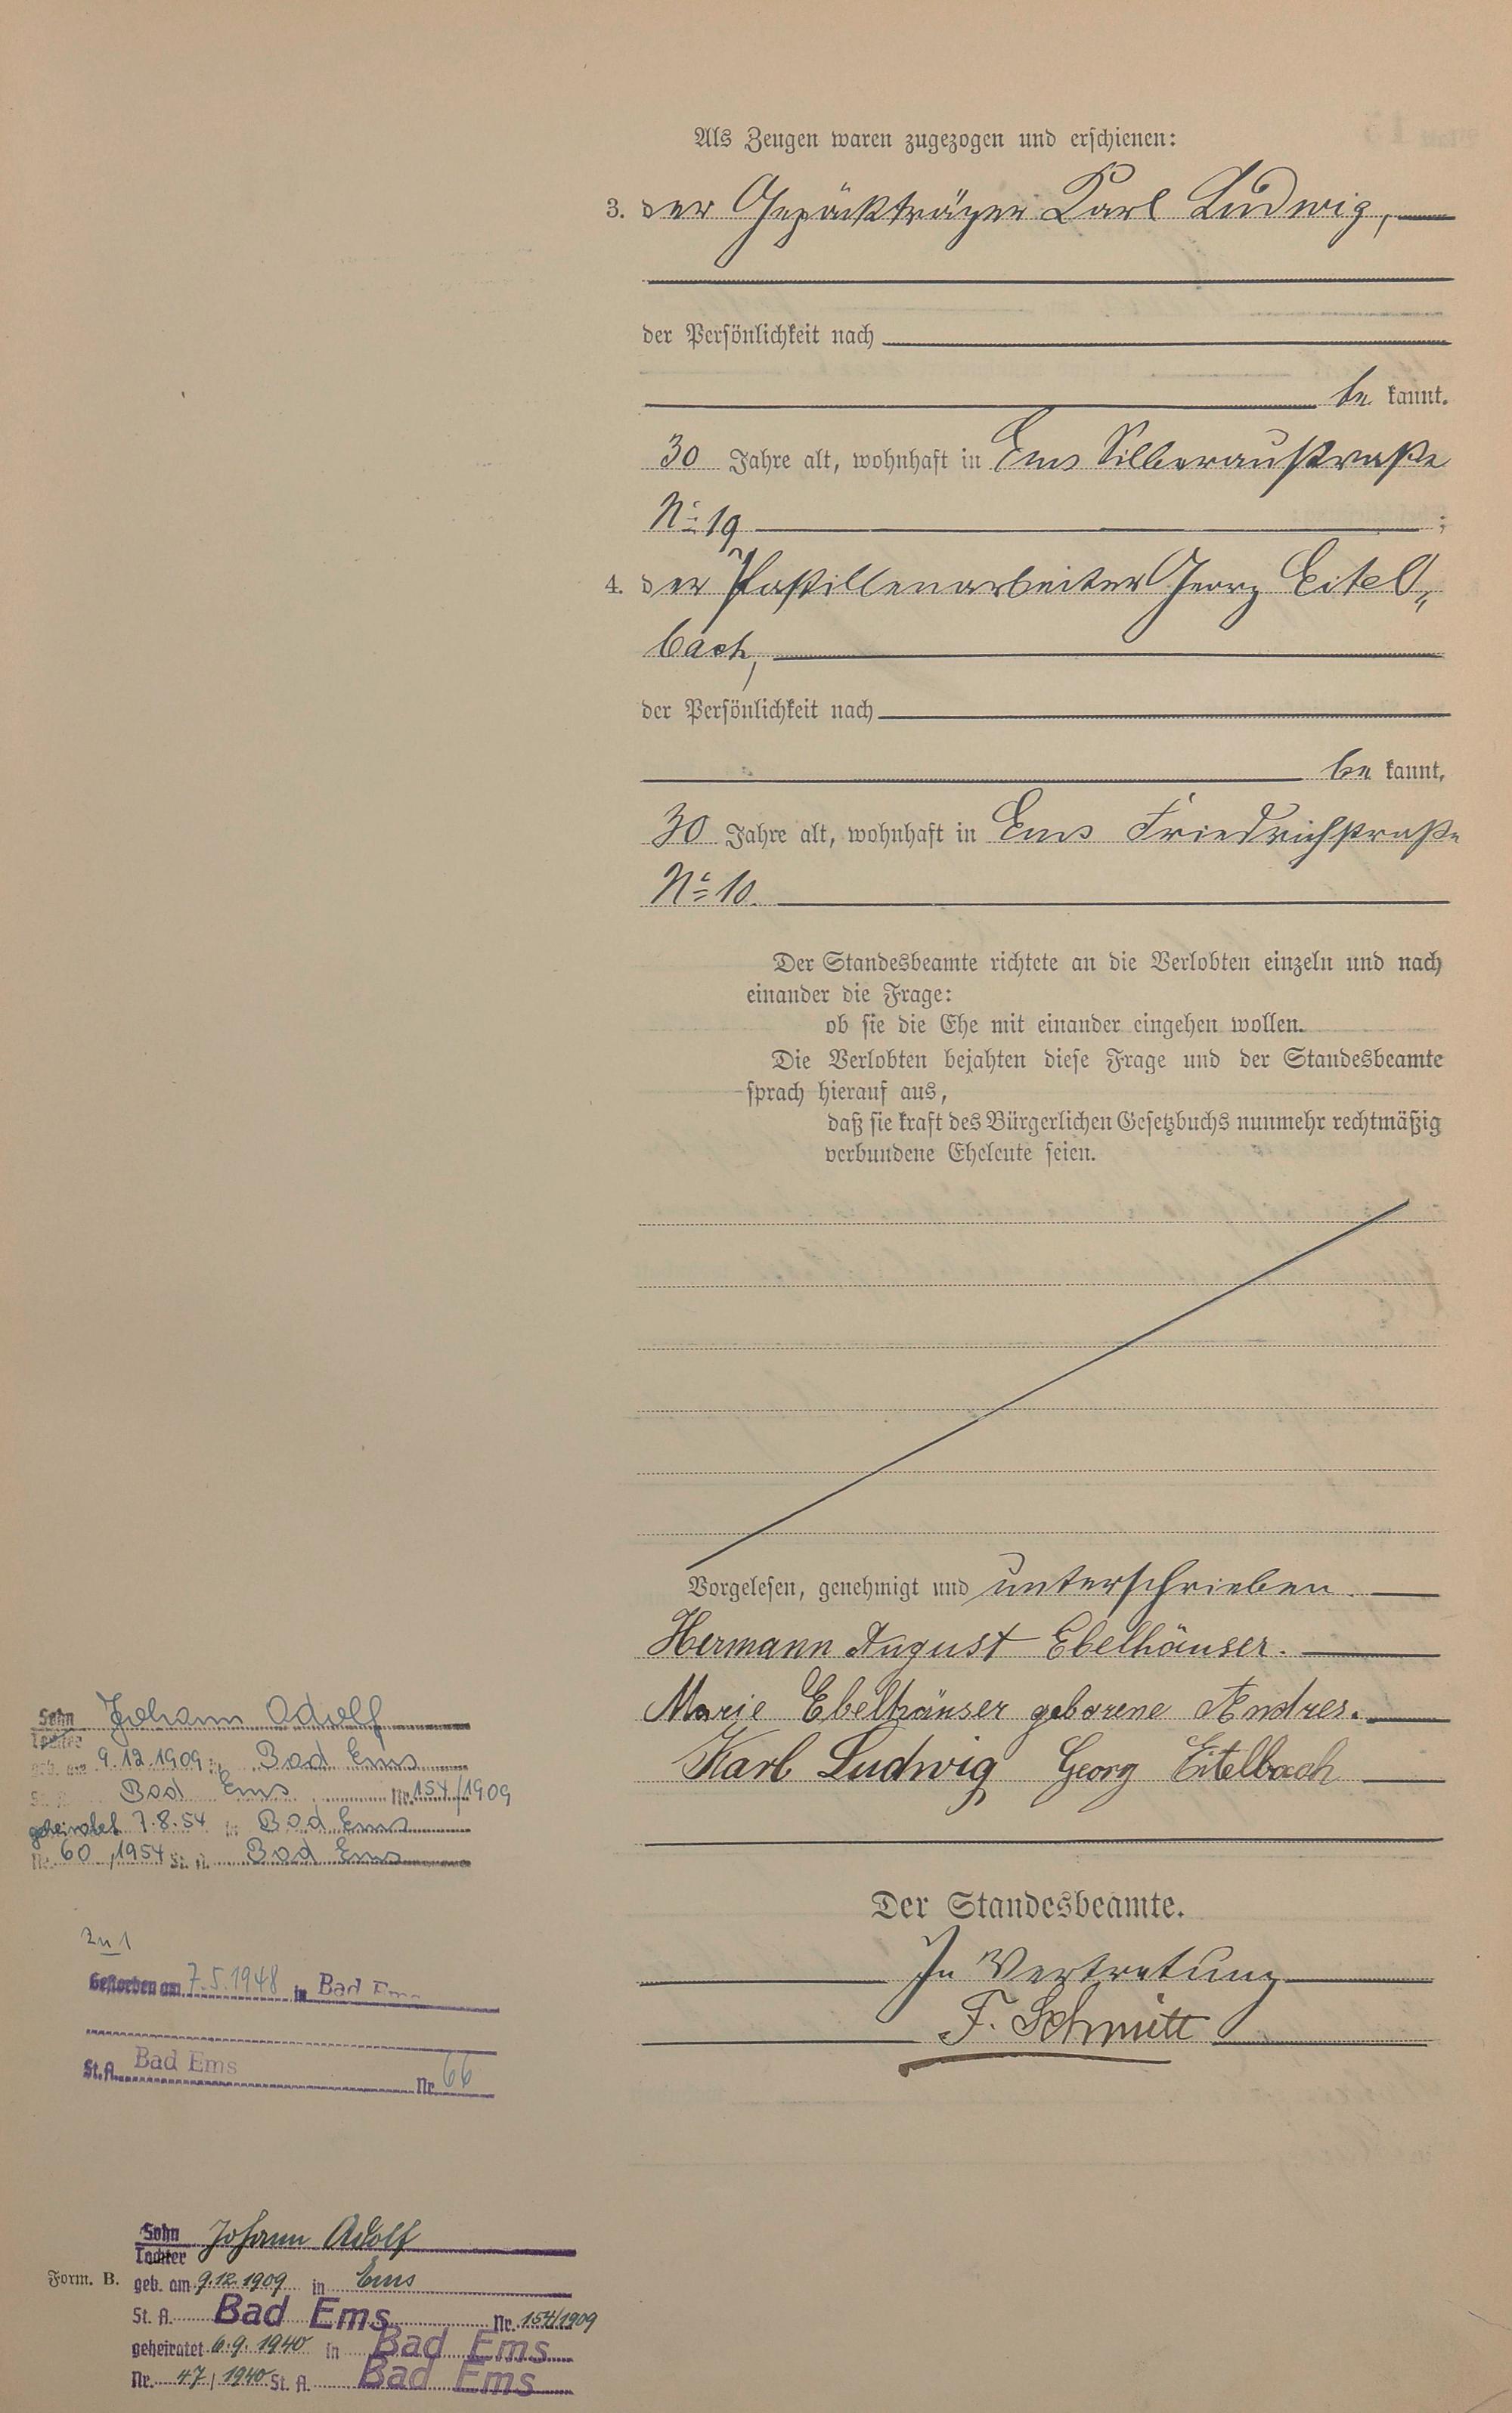 Als Zeugen waren zugezogen und erschienen:
3. der Gepäckträger Karl Ludwig,
der Persönlichkeit nach
be kannt.
30 Jahre alt, wohnhaft in Ems Silberaustraße
No 19 ;
4. der Pastillenarbeiter Georg Eitel„
bach,
der Persönlichkeit nach
be kannt,
30 Jahre alt, wohnhaft in Ems Friedrichstraße
No 10.
Der Standesbeamte richtete an die Verlobten einzeln und nach
einander die Frage:
ob sie die Ehe mit einander eingehen wollen.
Die Verlobten bejahten diese Frage und der Standesbeamte
sprach hierauf aus,
daß sie kraft des Bürgerlichen Gesetzbuchs nunmehr rechtmäßig
verbundene Eheleute seien.
Vorgelesen, genehmigt und unterschrieben.
Hermann August Ebelhäuser.
Marie Ebelhäuser geborene Andres.
Karl Ludwig Georg Eitelbach
Der Standesbeamte.
In Vertretung
F. Schmitt
Sohn Johann Adolf
Tochter
geb. am 9.12.1909 in Bad Ems
St. A. Bad Ems Nr. 154/1909
geheiratet 7.8.54 in Bad Ems
Nr. 60/1954 St. A. Bad Ems
Zu 1
Gestorben am 7.5.1948 in Bad Ems
St. A. Bad Ems Nr. 66
Sohn Johann Adolf
Tochter
Form. B. geb. am 9.12.1909 in Ems
St. A. Bad Ems Nr. 154/1909
geheiratet 6.9.1940 in Bad Ems
Nr. 47/1940 St. A. Bad Ems